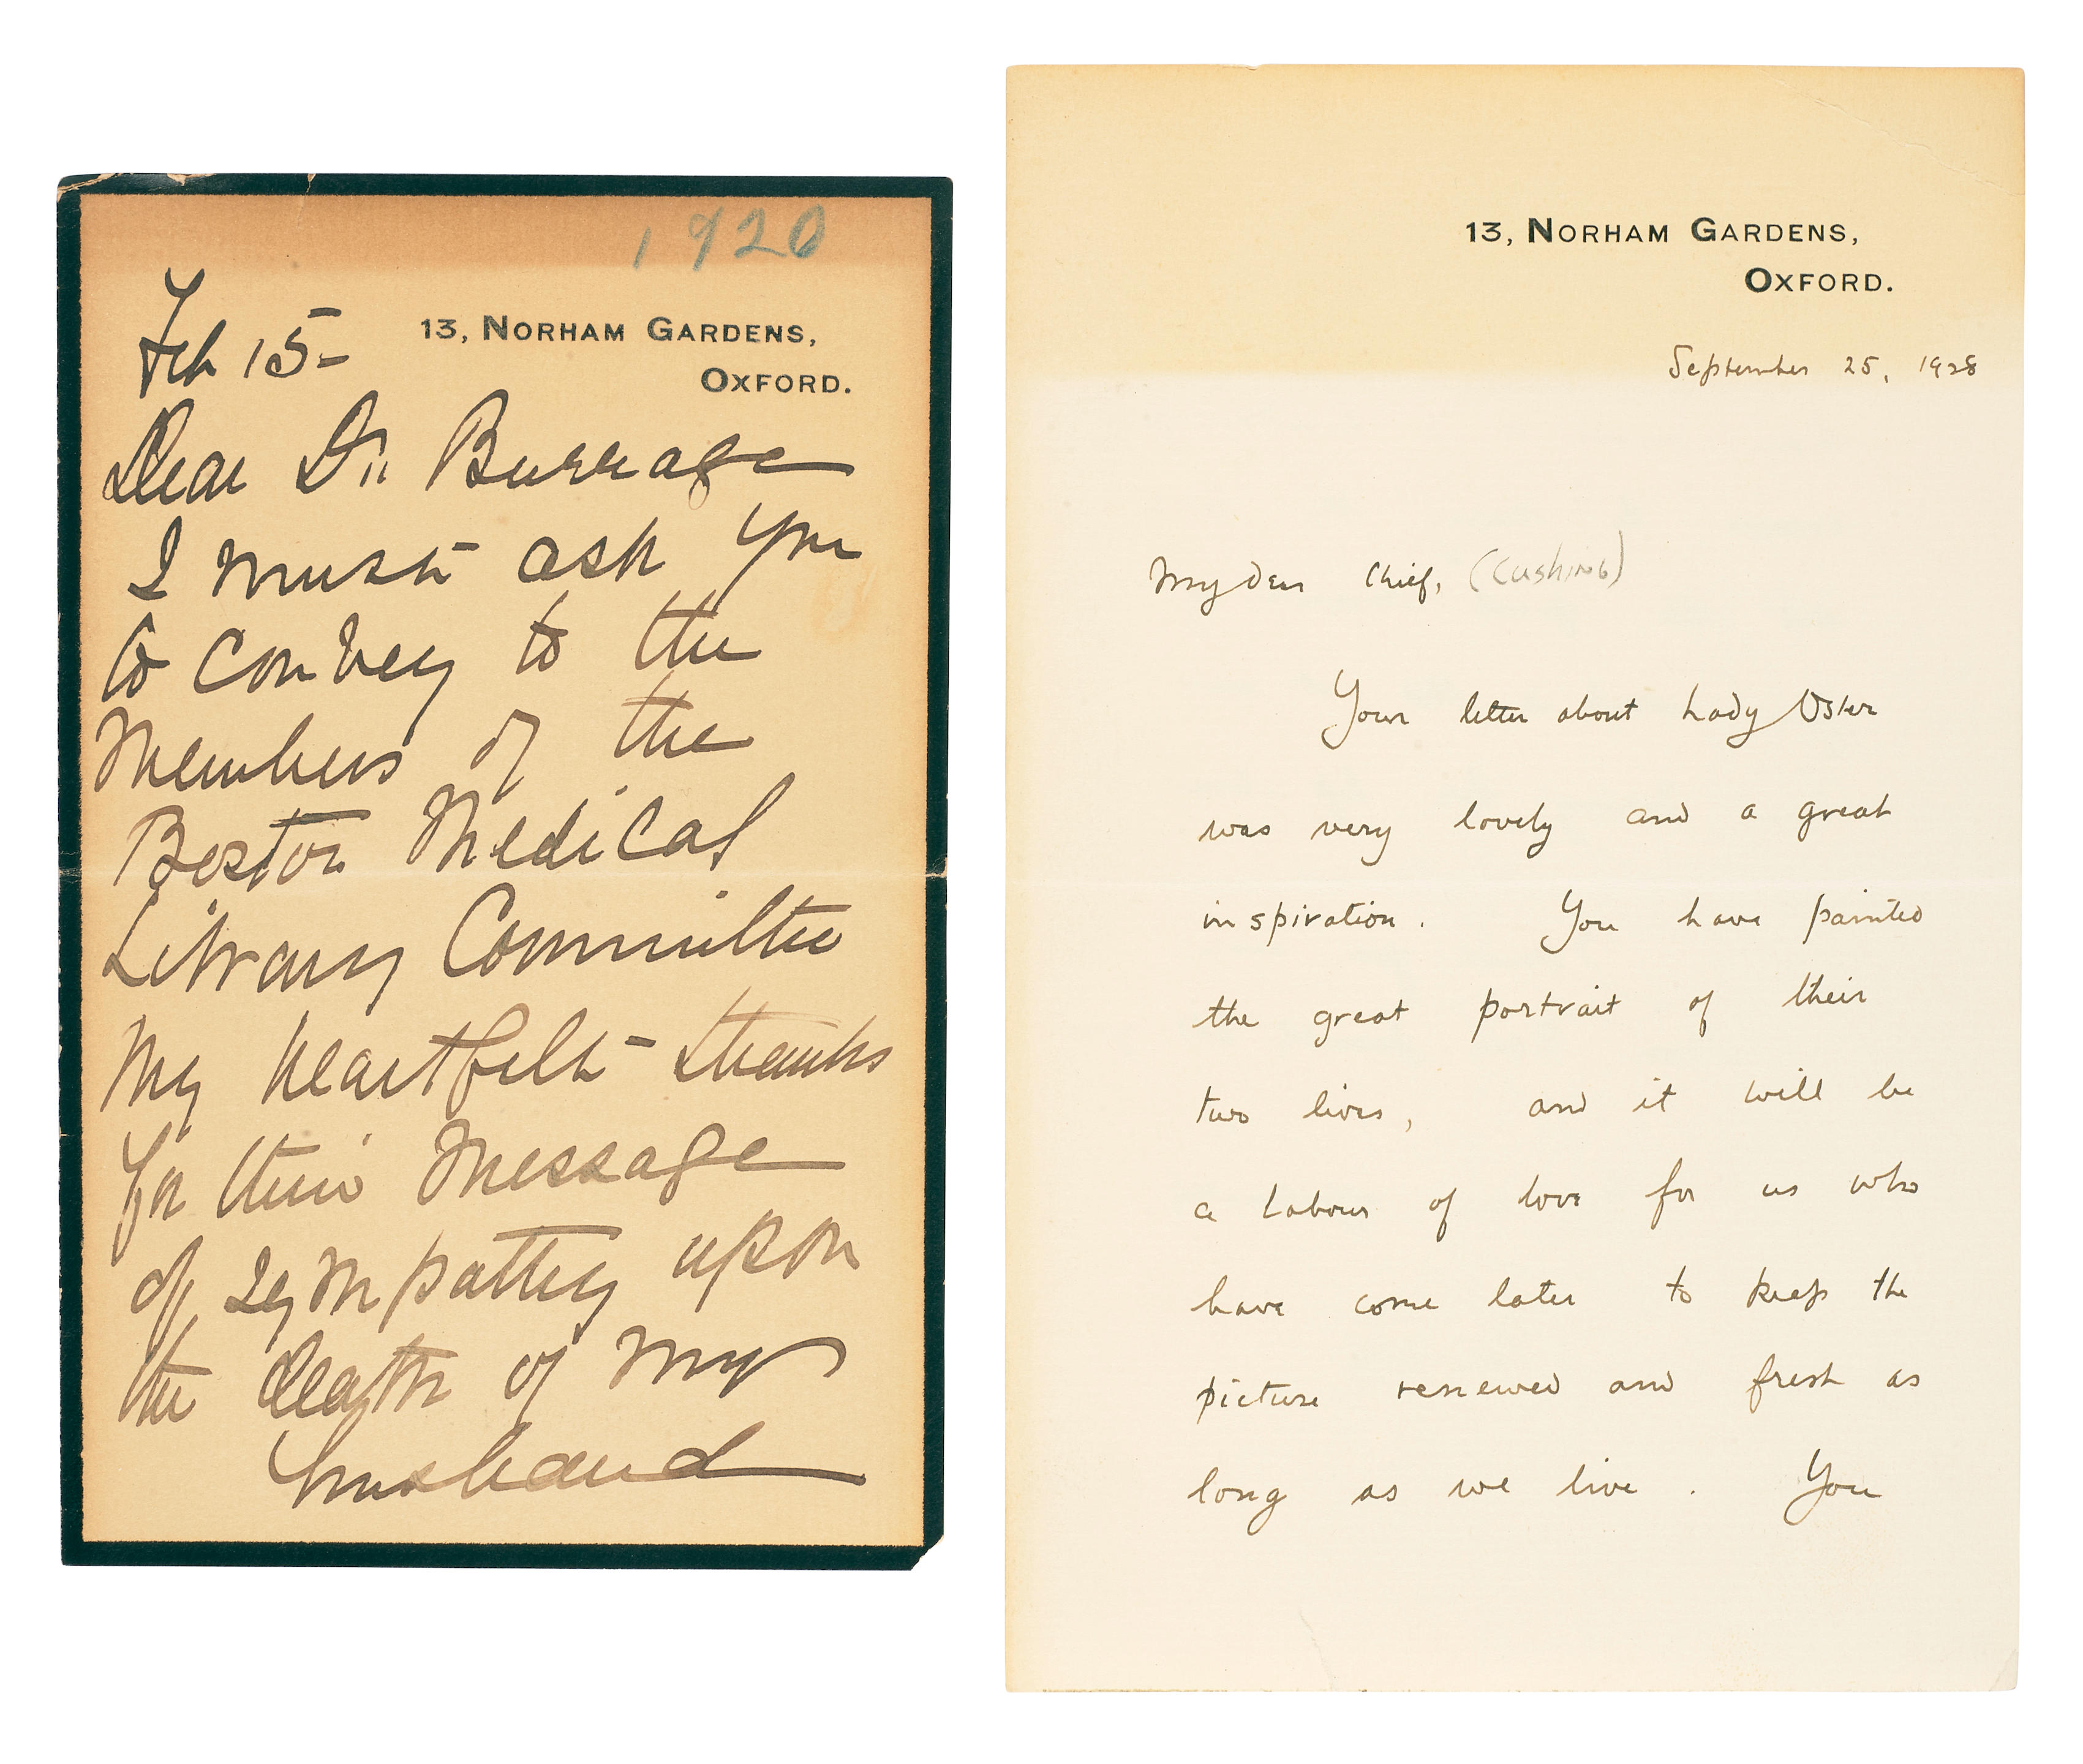 1920
Feb 15-
13, NORHAM GARDENS,
OXFORD.
Dear Dr. Burrage
I must ask you
to convey to the
Members of the
Boston Medical
Library Committee
my heartfelt thanks
for their message
of sympathy upon
the death of my
husband
13, NORHAM GARDENS,
OXFORD.
September 25, 1928
My dear Chief, (Cushing)
Your letter about Lady Osler
was very lovely and a great
inspiration. You have painted
the great portrait of their
two lives, and it will be
a labour of love for us who
have come later to keep the
picture renewed and fresh as
long as we live. You